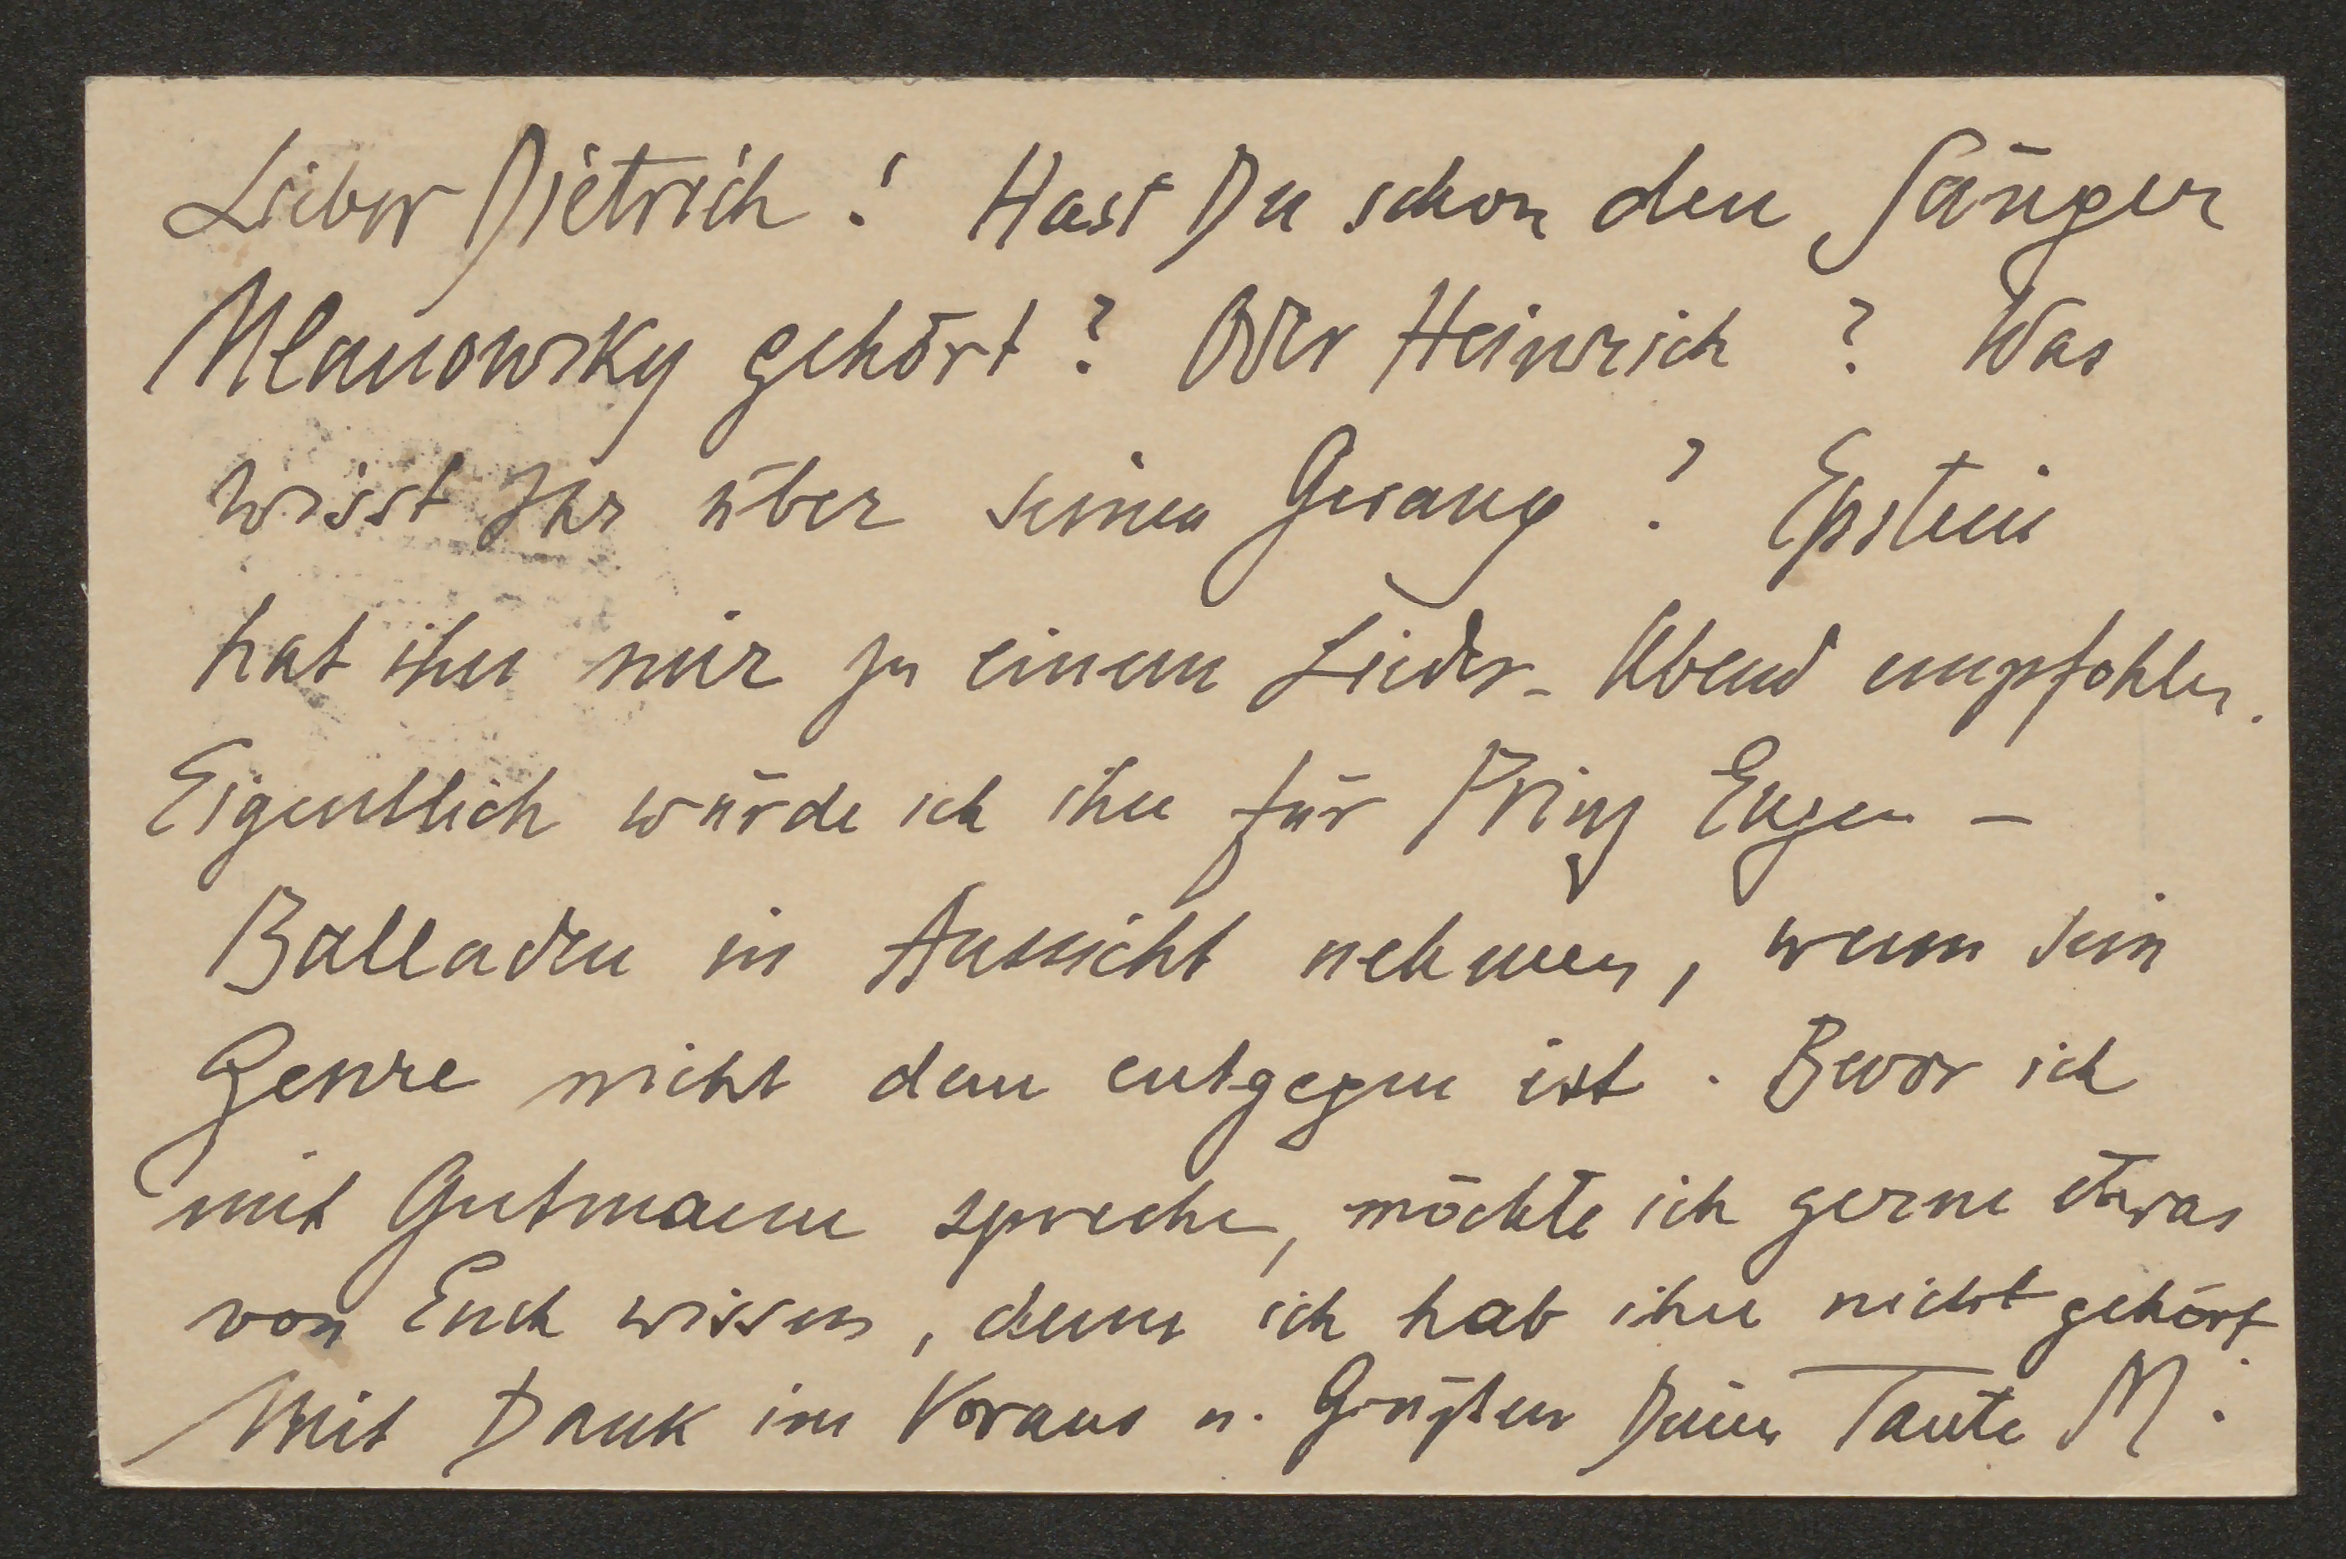 Lieber Dietrich! Hast Du schon den Sänger
Ulanowsky gehört? Oder Heinrich? Was
wisst Ihr über seinen Gesang? Epstein
hat ihn mir zu einem Lieder-Abend empfohlen.
Eigentlich würde ich ihn für Prinz Eugen-
Balladen in Aussicht nehmen, wenn sein
Genre nicht dem entgegen ist. Bevor ich
mit Gutmann spreche, möchte ich gerne etwas
von Euch wissen, denn ich hab ihn nicht gehört.
Mit Dank im Voraus u. Grüßen Deine Tante M.